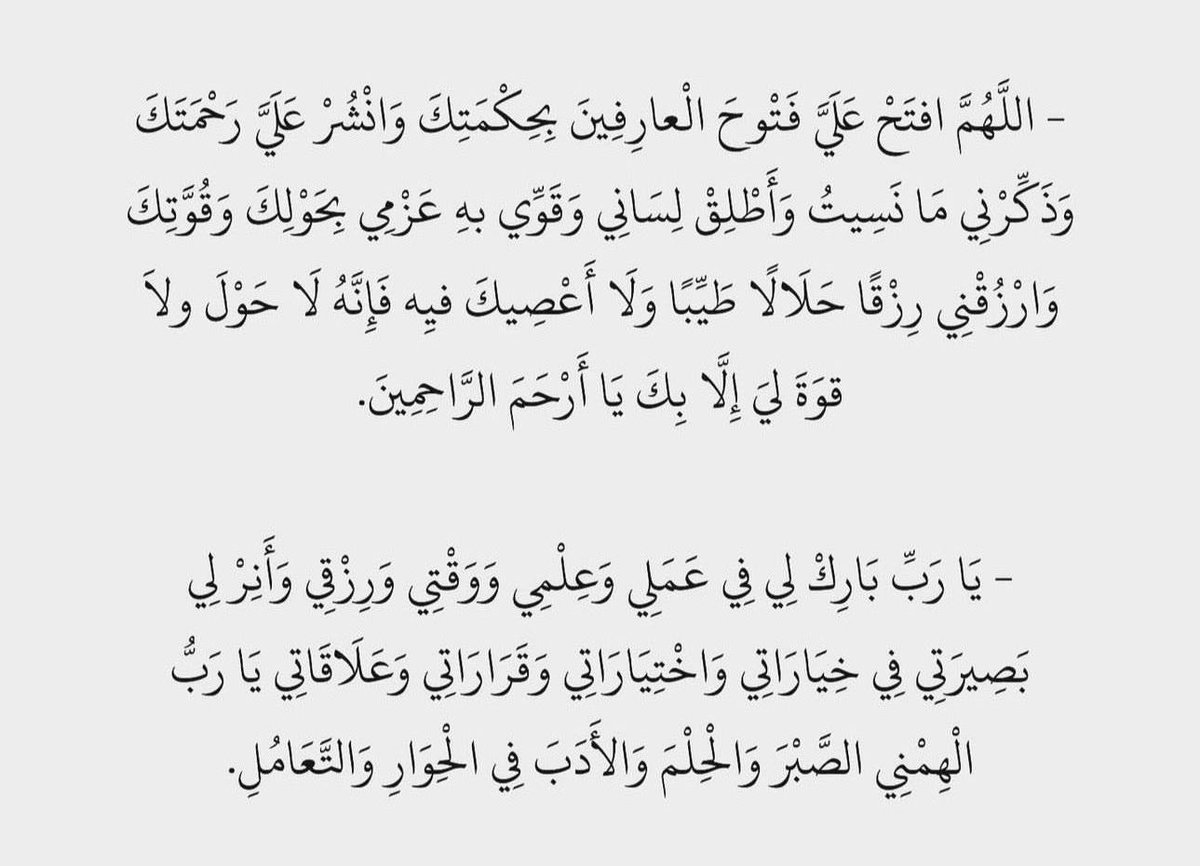 - اللَّهُمَّ افتَحْ عَلَيَّ فَتْوحَ الْعارِفِينَ بِحِكْمَتِكَ وَانْشُرْ عَلَيَّ رَحْمَتَكَ
وَذَكِّرْنِي مَا نَسِيتُ وَأَطْلِقْ لِسَانِي وَقَوِّي بهِ عَزْمِي بِحَوْلِكَ وَقُوَّتِكَ
وَارْزُقْنِي رِزْقًا حَلَالًا طَيِّبًا وَلَا أَعْصِيكَ فيِه فَإِنَّهُ لَا حَوْلَ ولاَ
قوَةَ ليَ إِلَّا بِكَ يَا أَرْحَمَ الرَّاحِمِينَ.
- يَا رَبِّ بَارِكْ لِي فِي عَمَلِي وَعِلْمِي وَوَقْتِي وَرِزْقِي وَأَنِرْ لِي
بَصِيرَتِي فِي خِيَارَاتِي وَاخْتِيَارَاتِي وَقَرَارَاتِي وَعَلَاقَاتِي يَا رَبُّ
الْهِمْنِي الصَّبْرَ وَالْحِلْمَ وَالأَدَبَ فِي الْحِوَارِ وَالتَّعَامُلِ.